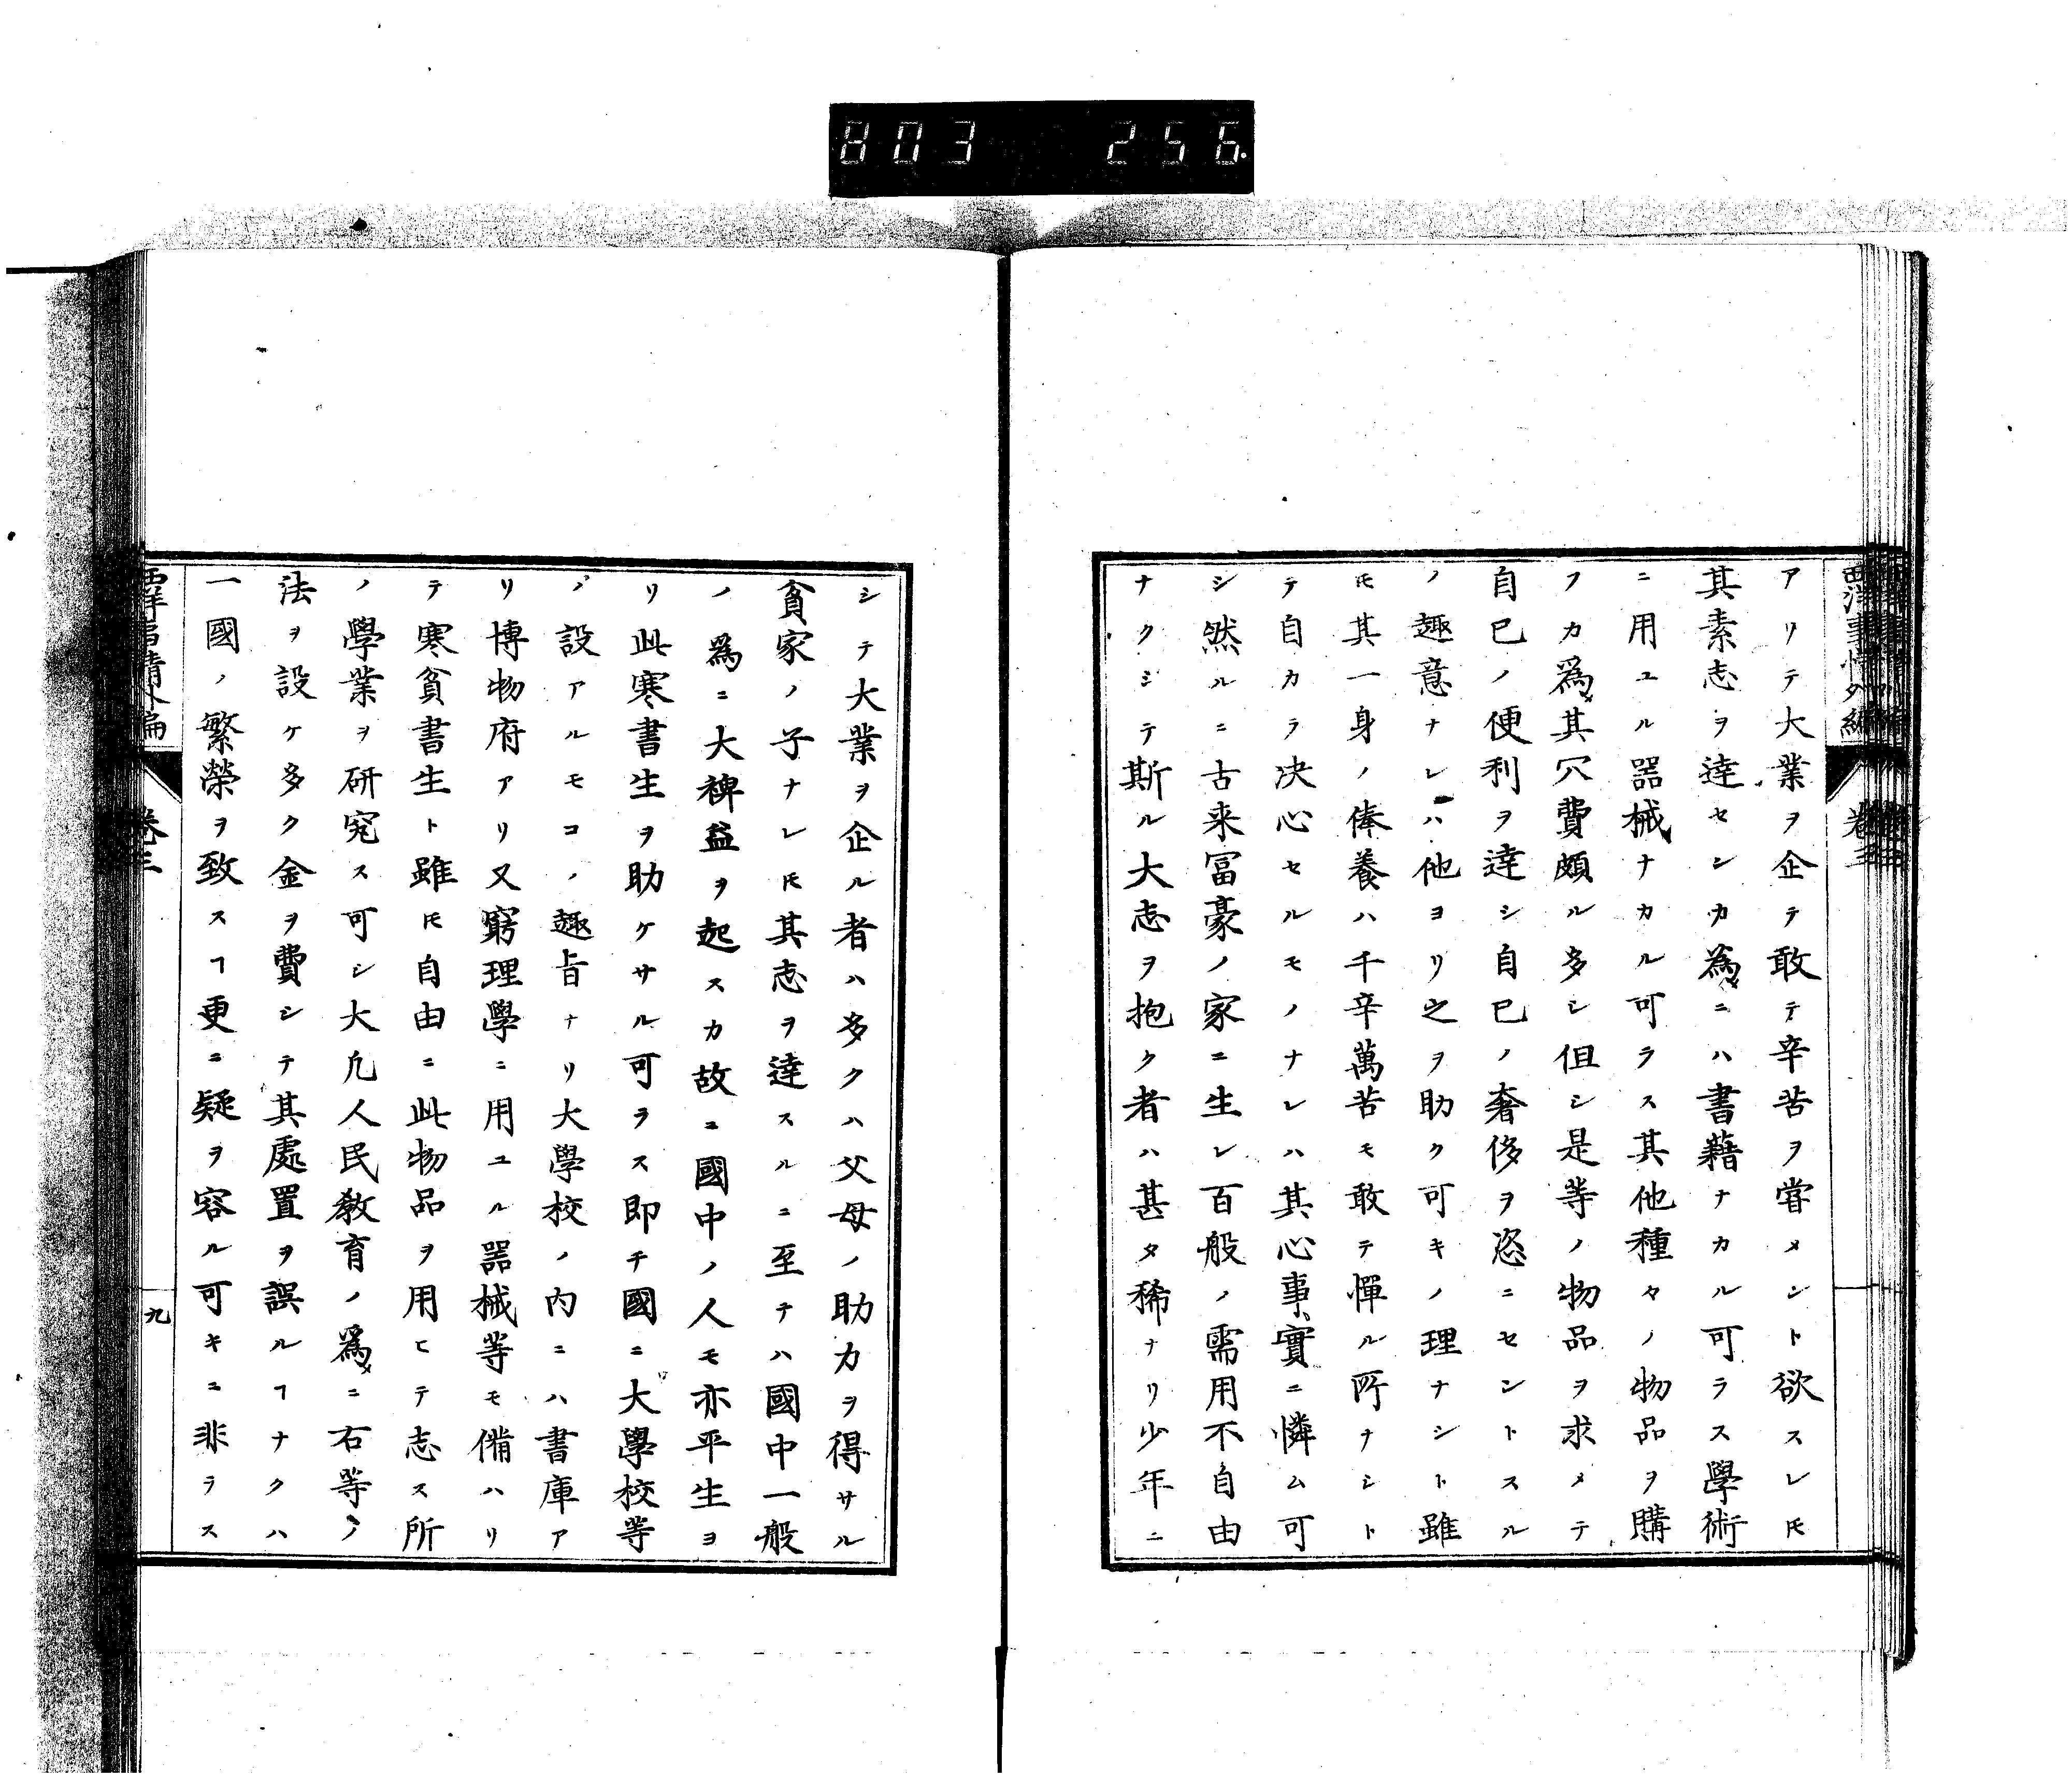 803 256
西洋事情外編 卷三
アリテ大業ヲ企テ敢テ辛苦ヲ嘗メント欲スレ𪜈
其素志ヲ達センカ為メニハ書藉ナカル可ラス學術
ニ用ユル噐械ナカル可ラス其他種々ノ物品ヲ購
フカ為メ其冗費頗ル多シ但シ是等ノ物品ヲ求メテ
自已ノ便利ヲ達シ自已ノ奢侈ヲ恣ニセントスル
ノ趣意ナレハ他ヨリ之ヲ助ク可キノ理ナシト雖
𪜈其一身ノ俸養ハ千辛萬苦モ敢テ憚ル所ナシト
テ自カラ决心セルモノナレハ其心事實ニ憐ム可
シ然ルニ古来冨豪ノ家ニ生レ百般ノ需用不自由
ナクシテ斯ル大志ヲ抱ク者ハ甚タ稀ナリ少年ニ
シテ大業ヲ企ル者ハ多クハ父母ノ助力ヲ得サル
貧家ノ子ナレ𪜈其志ヲ達スルニ至テハ國中一般
ノ為ニ大裨益ヲ起スカ故ニ國中ノ人モ亦平生ヨ
リ此寒書生ヲ助ケサル可ラス即チ國ニ大學校等
ノ設アルモコノ趣旨ナリ大學校ノ内ニハ書庫ア
リ博物府アリ又窮理學ニ用ユル噐械等モ備ハリ
テ寒貧書生ト雖𪜈自由ニ此物品ヲ用ヒテ志ス所
ノ學業ヲ研究ス可シ大凡人民教育ノ爲メニ右等ノ
法ヲ設ケ多ク金ヲ費シテ其處置ヲ誤ルヿナクハ
一國ノ繁榮ヲ致スヿ更ニ疑ヲ容ル可キニ非ラス
西洋事情外編 卷三 九